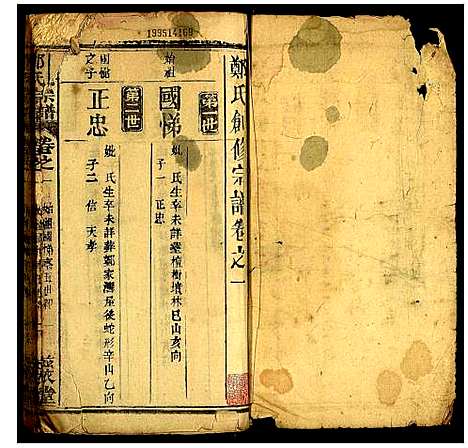 199514169
鄭氏創修宗譜卷之一
第一世
始祖
國悌
妣 氏生卒未詳塟檀樹墳林巳山亥向
子一 正忠
第二世
國悌之子
正忠
妣 氏生卒未詳葬鄭家灣屋後蛇形辛山乙向
子二 信 天孝
鄭氏宗譜
卷之一